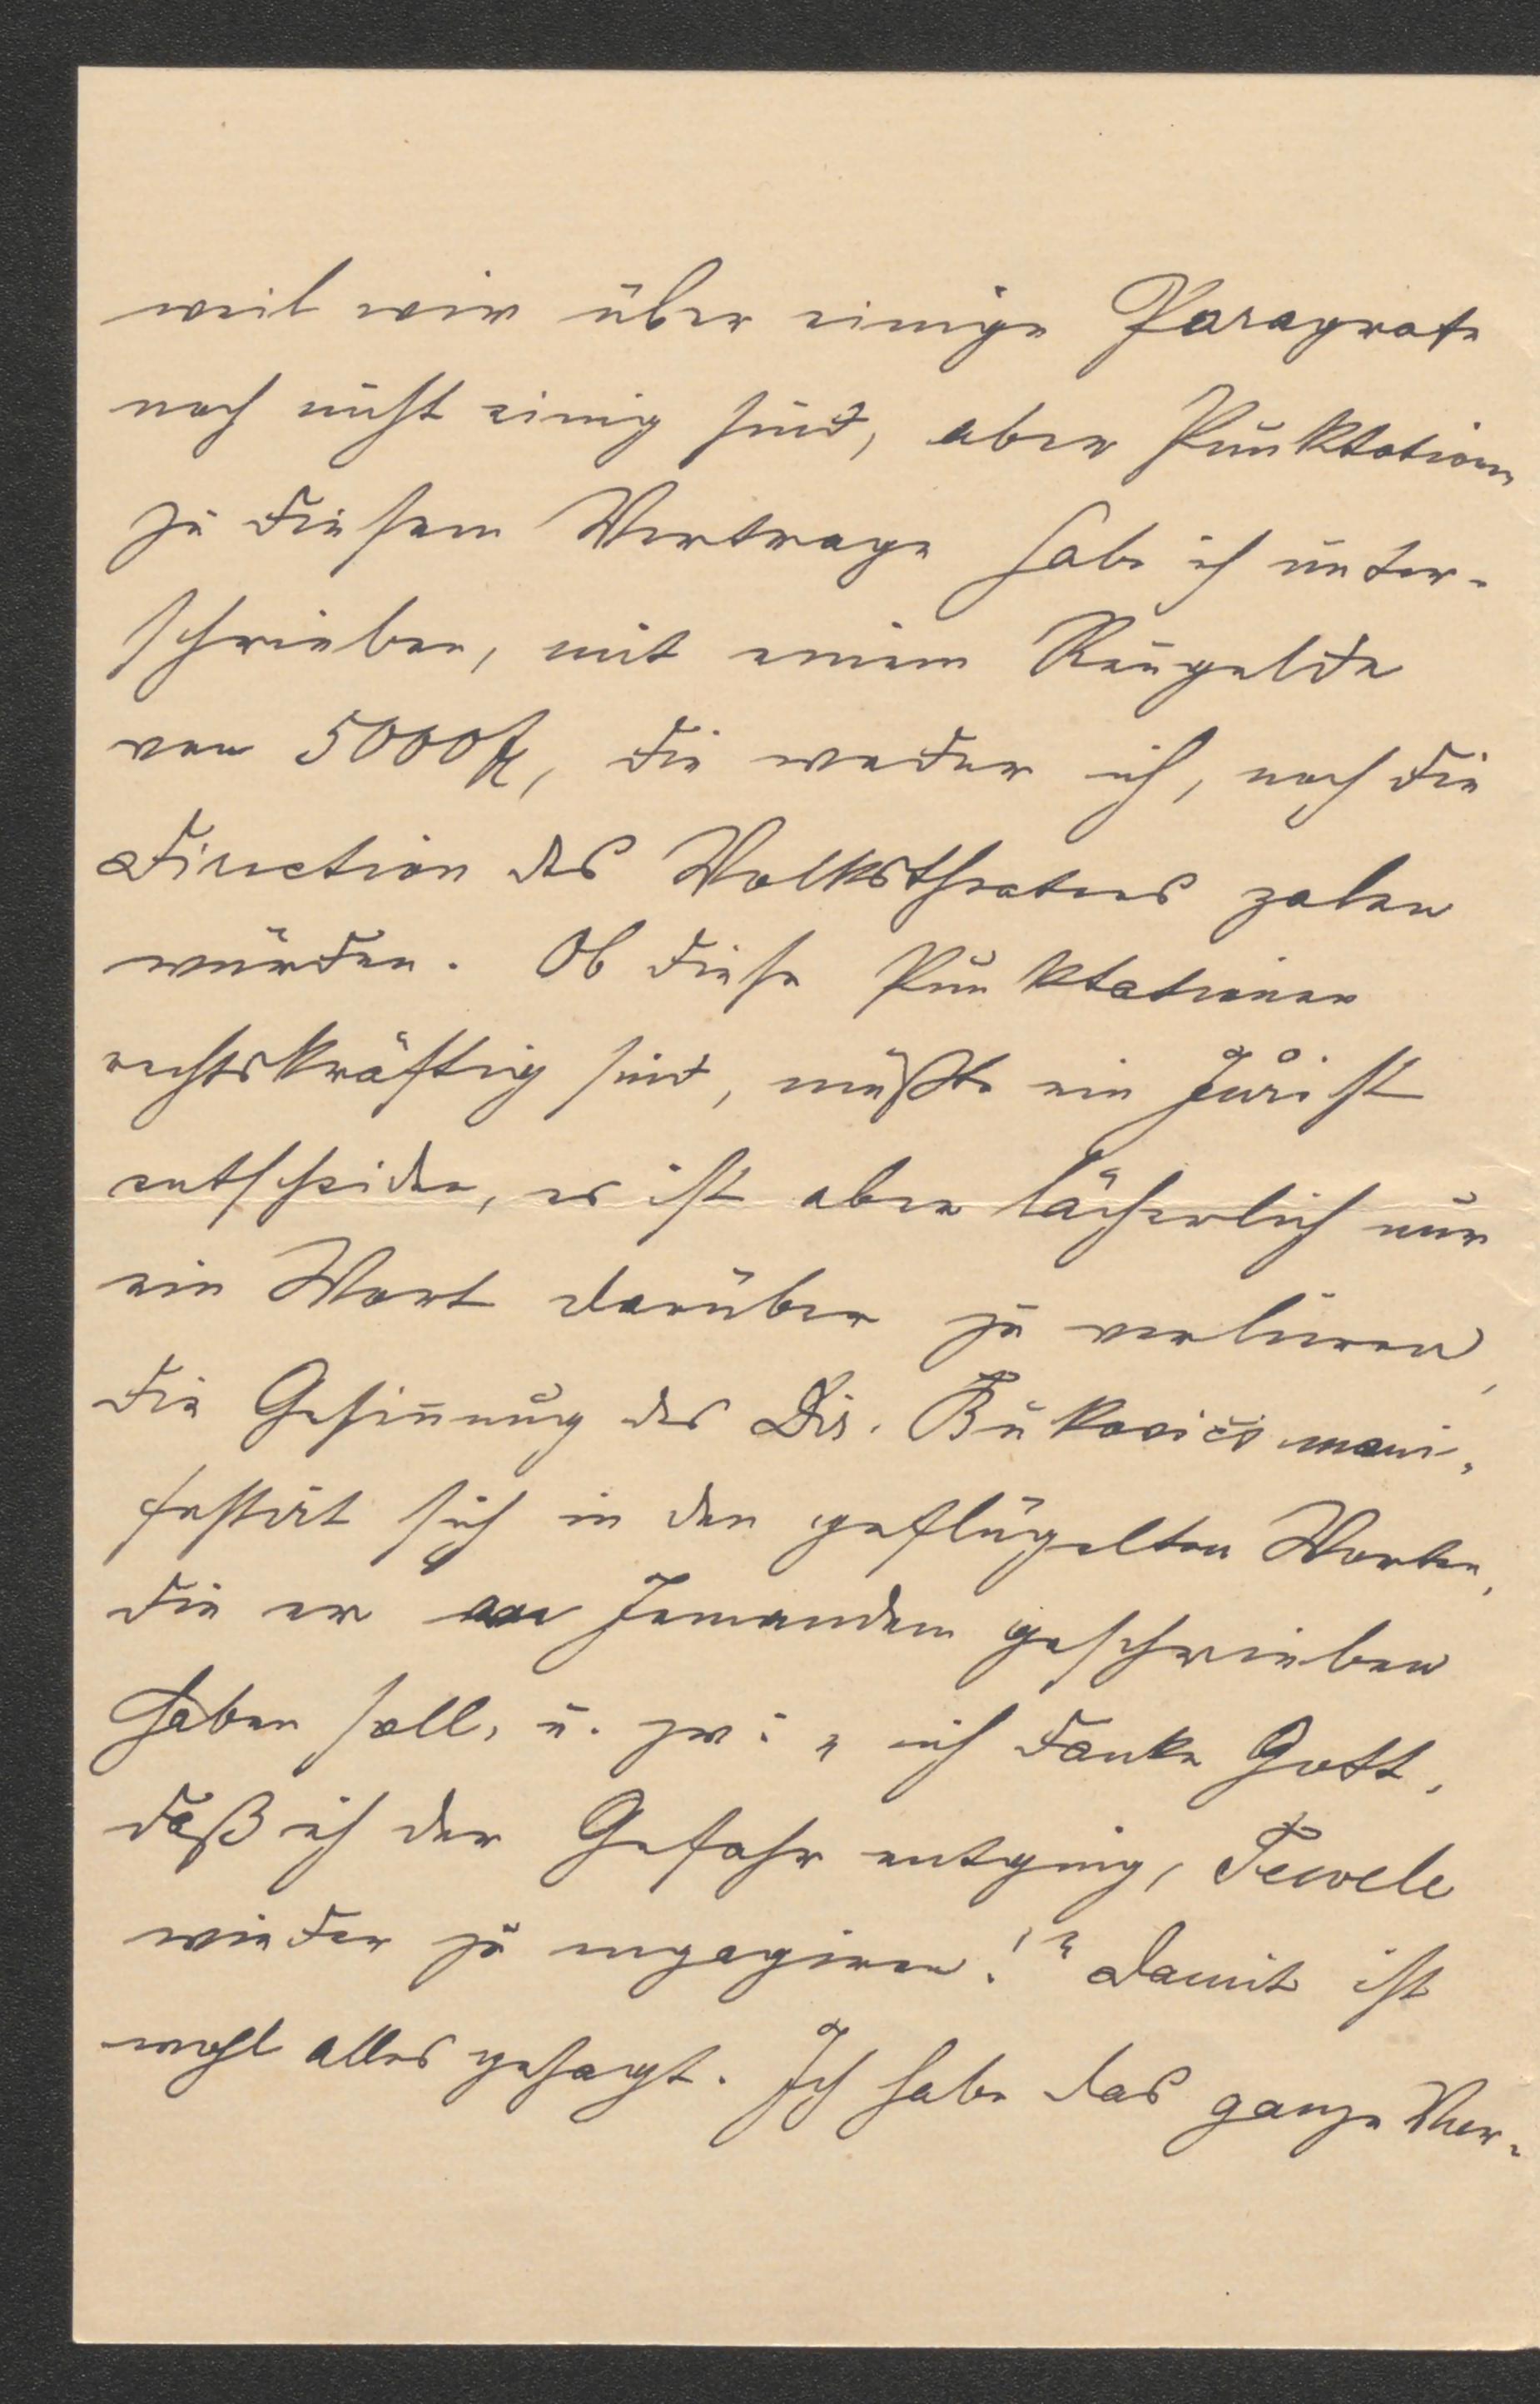 weil wir über einige Paragrafe
noch nicht einig sind, aber Punktationen
zu diesem Vertrage habe ich unter-
schrieben, mit einem Reugelde
von 5000 fl, die weder ich, noch die
Direction des Volkstheaters zalen
würden. Ob diese Punktationen
rechtskräftig sind, müßte ein Jurist
entscheiden, es ist aber lächerlich nur
ein Wort darüber zu verlieren,
die Gesinnung des Dir. Bukovics mani-
festirt sich in den geflügelten Worten,
die er an Jemandem geschrieben
haben soll, u. zw: „ich danke Gott,
daß ich der Gefahr entging, Tewele
wieder zu engagiren!" Damit ist
wohl alles gesagt. Ich habe das ganze Ver-